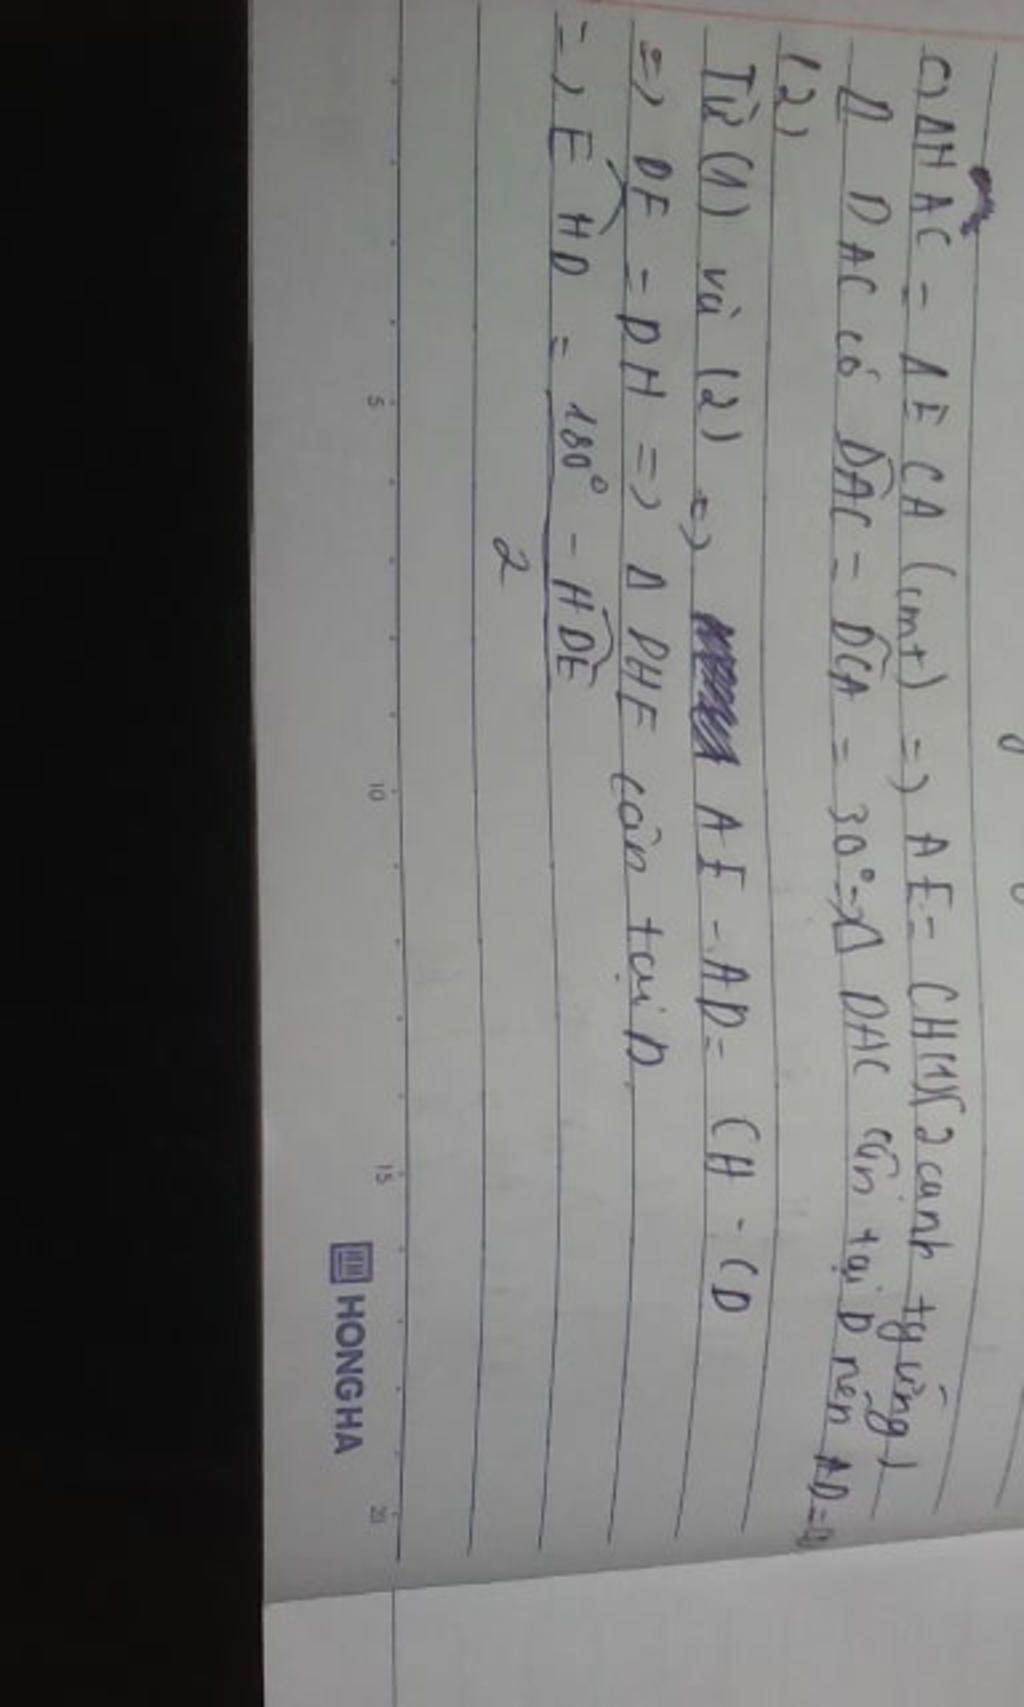 c) ΔHAC = ΔECA (cmt) => AE = CH (1) (2 cạnh tg ứng)
Δ DAC có DAC = DCA = 30° => Δ DAC cân tại D nên AD =
(2)
Từ (1) và (2) => AE - AD = CH - CD
=> DE = DH => Δ DHE cân tại D
=> EHD = 180° - HDE
2
5 10 15 20
HONG HA